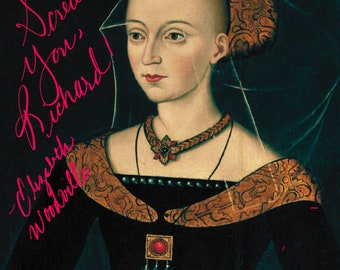 Screw
You,
Richard!
Elizabeth
Woodville